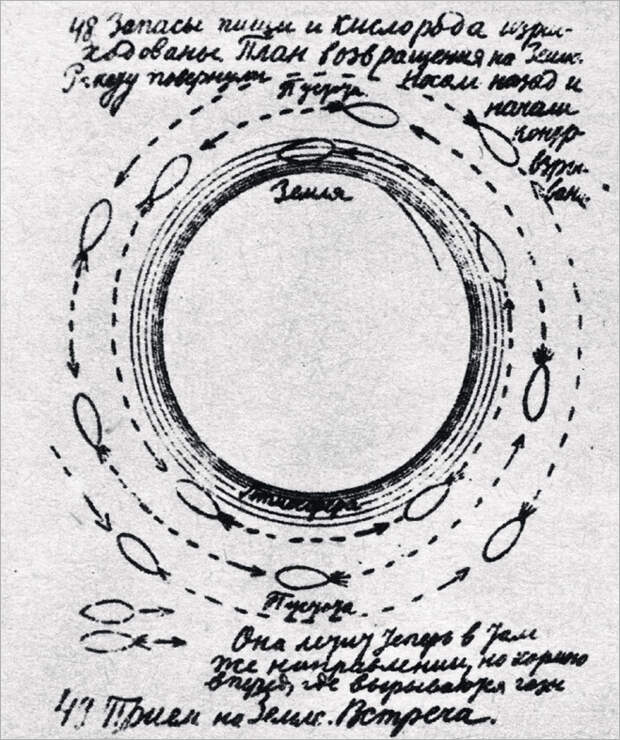 48 Запасы пищи и кислорода израс-
ходованы. План возвращения на Землю.
Ракету повернули носом назад и
начали
контр-
взрывание
Пустота
Земля
Атмосфера
Пустота
Она летит теперь в том
же направлении, но кормою
вперед, где вырываются газы
49 Прием на Земле. Встреча.